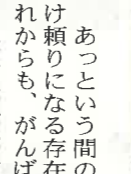 あっという間の
け頼りになる存在
れからも、がんば